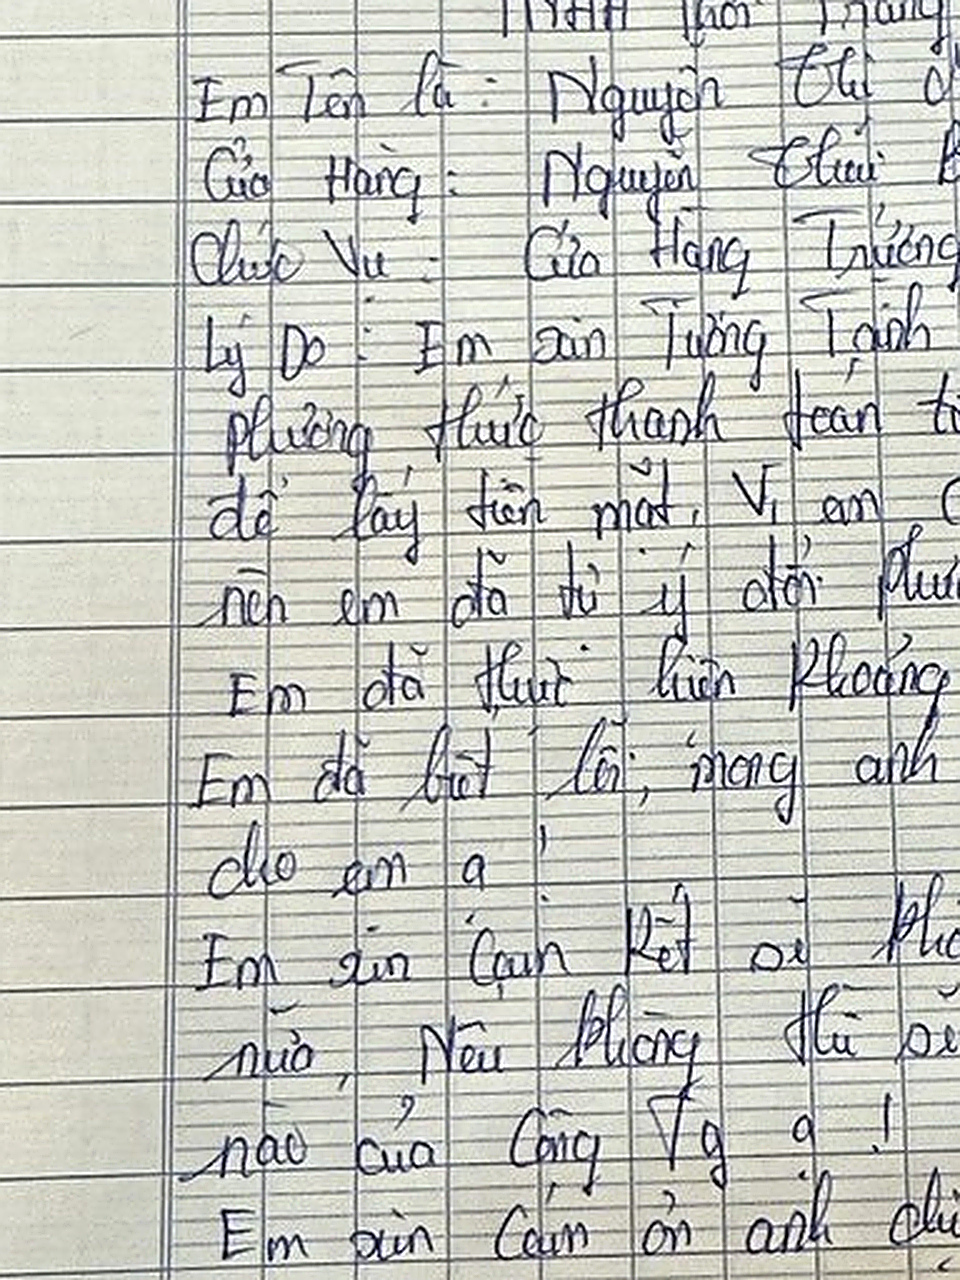 Thời Trang
Em Tên là: Nguyễn Thị
Cửa Hàng: Nguyễn Thái
Chức Vụ: Cửa Hàng Trưởng
Lý Do: Em xin Tường Trình
phương thức thanh toán
để lấy tiền mặt, Vì em
nên em đã tự ý đổi
Em đã thực hiện khoảng
Em đã biết lỗi, mong anh
cho em ạ!
Em xin Cam kết sẽ
nữa, Nếu không thì
nào của Công Ty ạ!
Em xin Cảm ơn anh